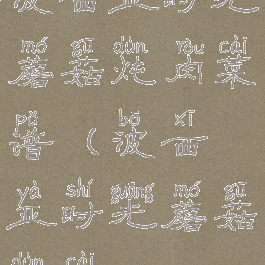 波西亚时光
mó gū dùn ròu cài
蘑菇炖肉菜
pǔ bō xī
谱（波西
yà shí guāng mó gū
亚时光蘑菇
dùn cài